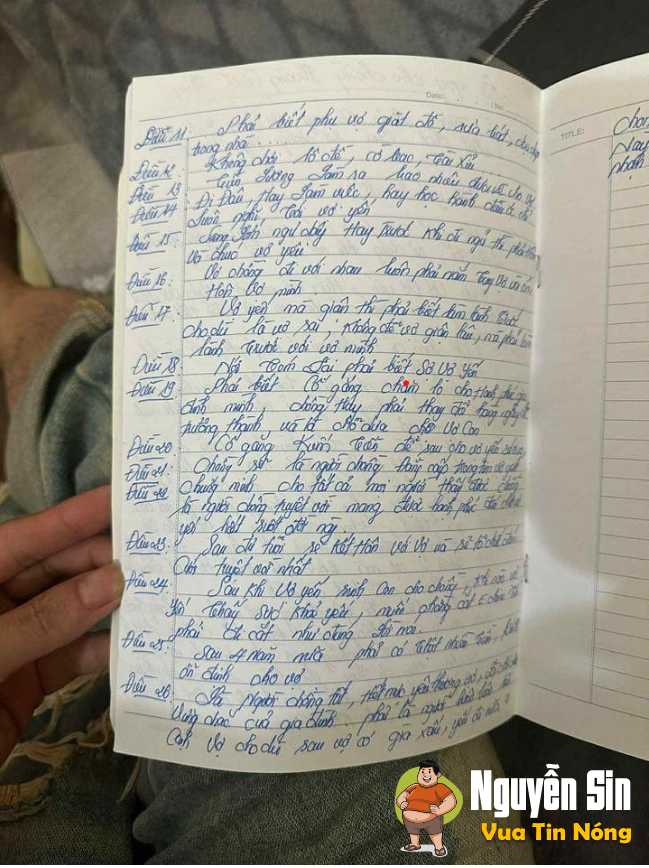 Date:
Điều 11 Phải biết phụ vợ giặt đồ, rửa bát,
trong nhà .....
Điều 12 Không chơi lô đề, cờ bạc, tài xỉu
Điều 13 Tiền lương làm ra bao nhiêu đưa về
Điều 14 Đi Đâu, Hay Làm việc, hay học hành
Luôn nghĩ tới vợ yến
Điều 15: Sáng ngủ dậy Hay trước khi đi ngủ thì phải
và chúc vợ yêu
Điều 16: Vợ chồng đi với nhau luôn phải nắm tay Vợ và
Hôn Vợ mình
Điều 17 Vợ yến mà giận thì phải biết làm lành trước
cho dù là vợ sai, không để vợ giận lâu, mà phải làm
lành trước với vợ mình
Điều 18 Nói tóm lại phải biết sợ Vợ Yến
Điều 19 Phải biết Cố gắng chăm lo cho Hạnh phúc gia
đình mình, chồng phải thay đổi từng ngày để
trưởng thành, và là chỗ dựa cho Vợ Con
Điều 20 Cố gắng kiếm tiền để sau cho vợ yến
Điều 21: Chồng sẽ là người chồng trong
Điều 22 Chứng minh cho tất cả mọi người thấy được chồng
là người chồng tuyệt vời mang được hạnh phúc đến
yến hết suốt đời này.
Điều 23: Sau đủ tuổi sẽ kết Hôn với Vợ và sẽ tổ chức
Cưới tuyệt vời nhất
Điều 24: Sau khi Vợ yến sinh con cho chồng,
Yến Thấy sức khoẻ yếu, muốn chồng cắt
phải đi cắt như đúng lời nói
Điều 25: Sau 4 năm nữa phải có thật nhiều tiền,
ổn định cho vợ
Điều 26 Là Người chồng tốt, Hết mực yêu thương vợ,
vững chắc của gia đình. phải là người
Cạnh Vợ cho dù sau vợ có già xấu, yếu
TITLE:
Nguyễn Sin
Vua Tin Nóng